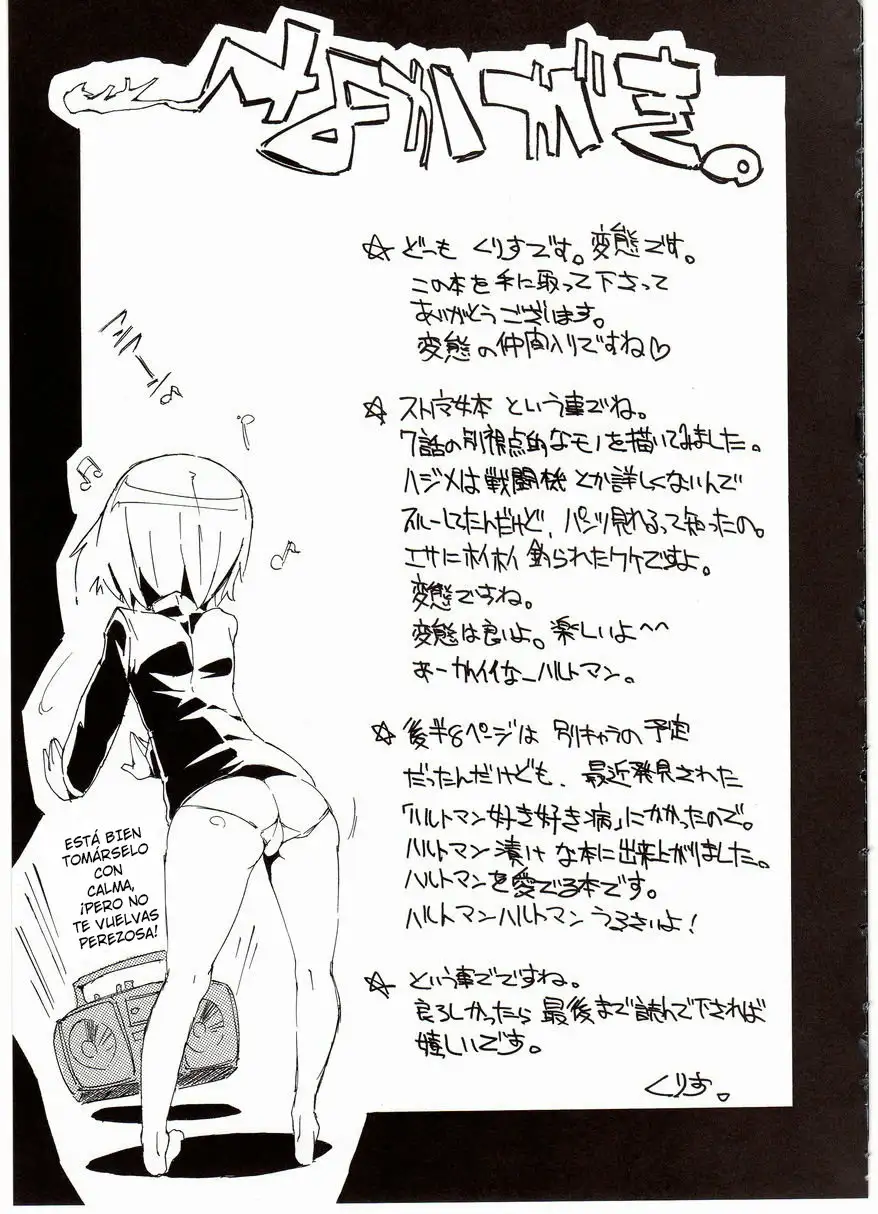 なかがき。
☆ どーも くりすです。変態です。
この本を手に取って下さって
ありがとうございます。
変態の仲間入りですね♡
☆ スト魔女本 という事でね。
7話の別視点的なモノを描いてみました。
ハジメは戦闘機とか詳しくないんで
スルーしてたんだけど、パンツ見れるって知ったの。
エサにホイホイ釣られたワケですよ。
変態ですね。
変態は良いよ。楽しいよ〜〜
あーかわイイなーハルトマン。
☆ 後半8ページは 別キャラの予定
だったんだけども、最近発見された
「ハルトマン好き好き病」にかかったので。
ハルトマン漬けな本に出来上がりました。
ハルトマンを愛でる本です。
ハルトマンハルトマンうるさいよ!
☆ という事でですね。
良ろしかったら最後まで読んで下されば
嬉しいです。
くりす。
ESTÁ BIEN
TOMÁRSELO
CON
CALMA,
¡PERO NO
TE VUELVAS
PEREZOSA!